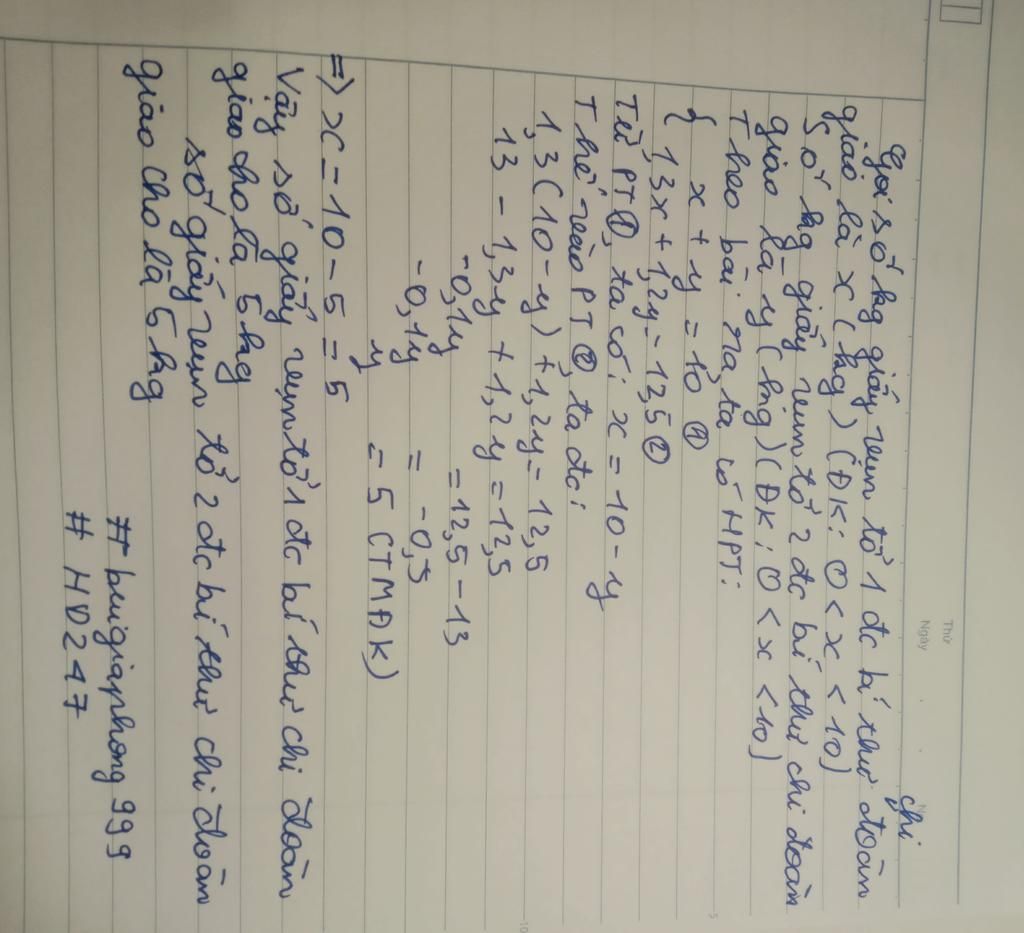 Thứ
Ngày
chi
Gọi số kg giấy vụn tổ 1 đc bí thư đoàn
giao là x (kg) (ĐK: 0 < x < 10)
Số kg giấy vụn tổ 2 đc bí thư chi đoàn
giao là y (kg) (ĐK: 0 < x < 10)
Theo bài ra, ta có HPT:
{ x + y = 10 ①
1,3x + 1,2y = 12,5 ②
Từ PT ①, ta có: x = 10 - y
Thế vào PT ②, ta đc:
1,3(10 - y) + 1,2y = 12,5
13 - 1,3y + 1,2y = 12,5
-0,1y = 12,5 - 13
-0,1y = -0,5
y = 5 (TMĐK)
=> x = 10 - 5 = 5
Vậy số giấy vụn tổ 1 đc bí thư chi đoàn
giao cho là 5 kg
số giấy vụn tổ 2 đc bí thư chi đoàn
giao cho là 5 kg
# buigiaphong999
# HD247